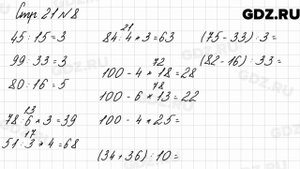 Стр. 21 №8
GDZ.RU
45 : 15 = 3
99 : 33 = 3
80 : 16 = 5
13
78 : 6 * 3 = 39
17
51 : 3 * 4 = 68
21
84 : 4 * 3 = 63
72
100 - 4 * 18 = 28
78
100 - 6 * 13 = 22
100 - 4 * 25 =
(34 + 36) : 10 =
(75 - 33) : 3 =
(82 - 16) : 33 =
GDZ.RU